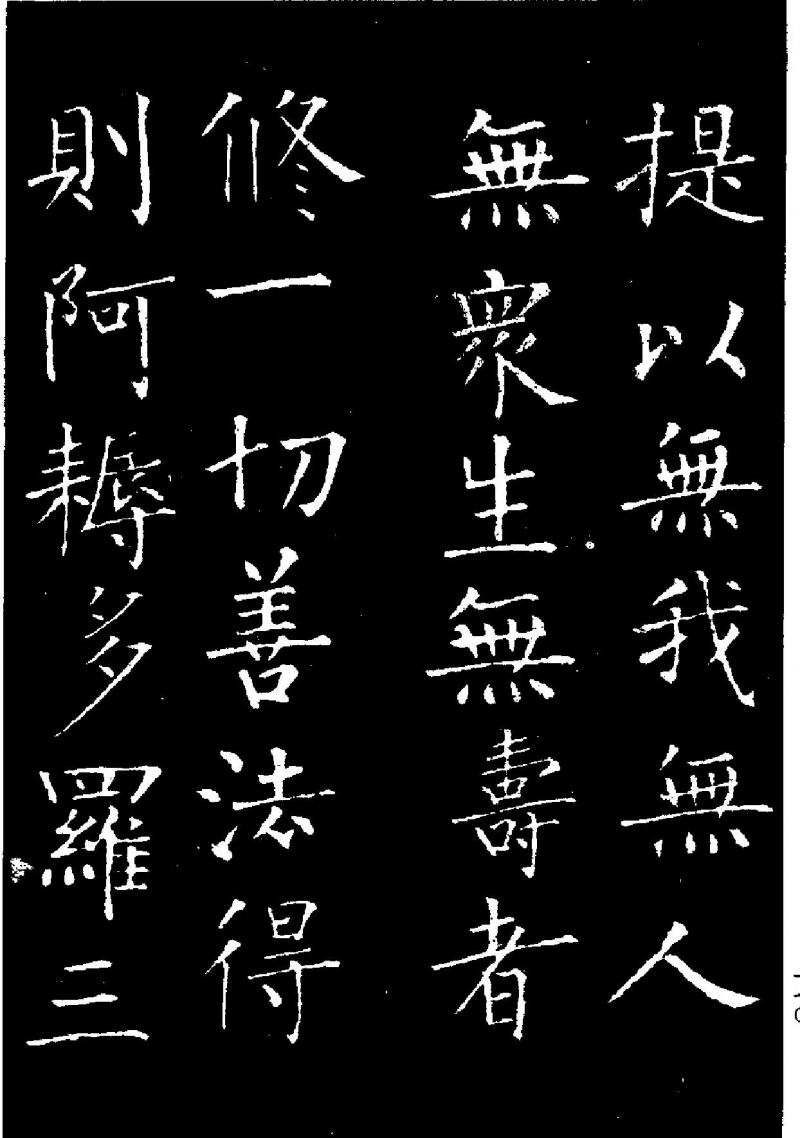 提以無我無人
無衆生無壽者
修一切善法得
則阿耨多羅三